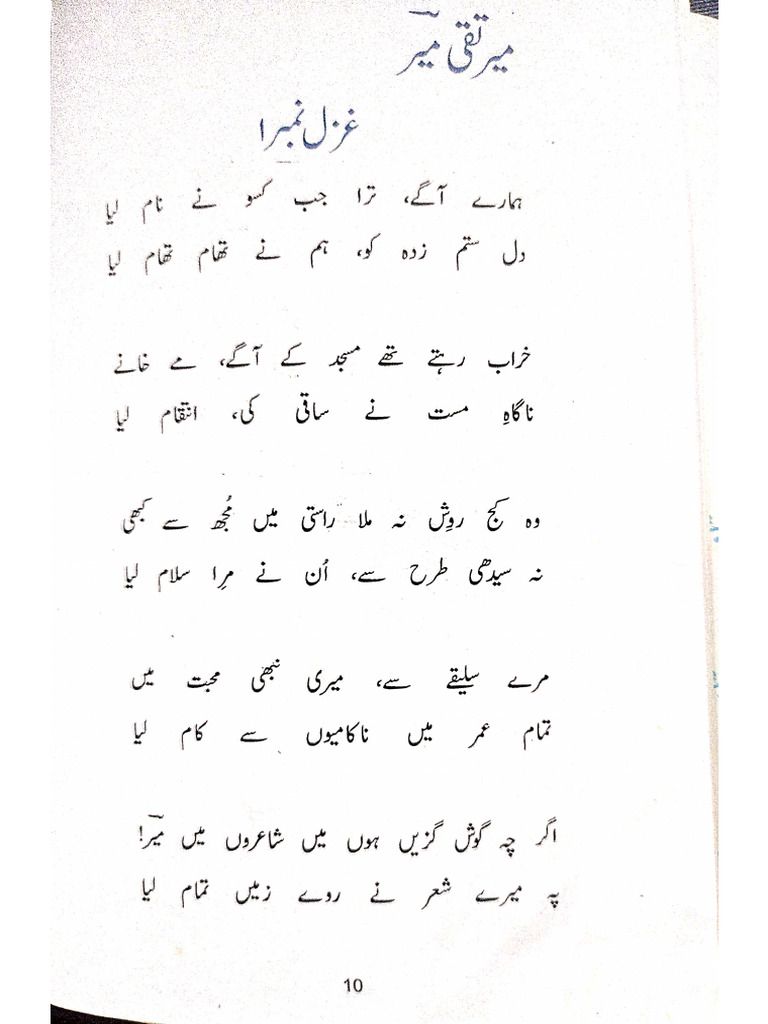 میر تقی میرؔ
غزل نمبر ۱
ہمارے آگے، ترا جب کسو نے نام لیا
دل ستم زدہ کو، ہم نے تھام تھام لیا
خراب رہتے تھے مسجد کے آگے، مے خانے
ناگاہِ مست نے ساقی کی، انتقام لیا
وہ کج رَوِش نہ ملا راستی میں مُجھ سے کبھی
نہ سیدھی طرح سے، اُن نے مِرا سلام لیا
مرے سلیقے سے، میری نبھی محبت میں
تمام عمر میں ناکامیوں سے کام لیا
اگر چہ گوش گزیں ہوں میں شاعروں میں میرؔ!
پہ میرے شعر نے روے زمیں تمام لیا
10